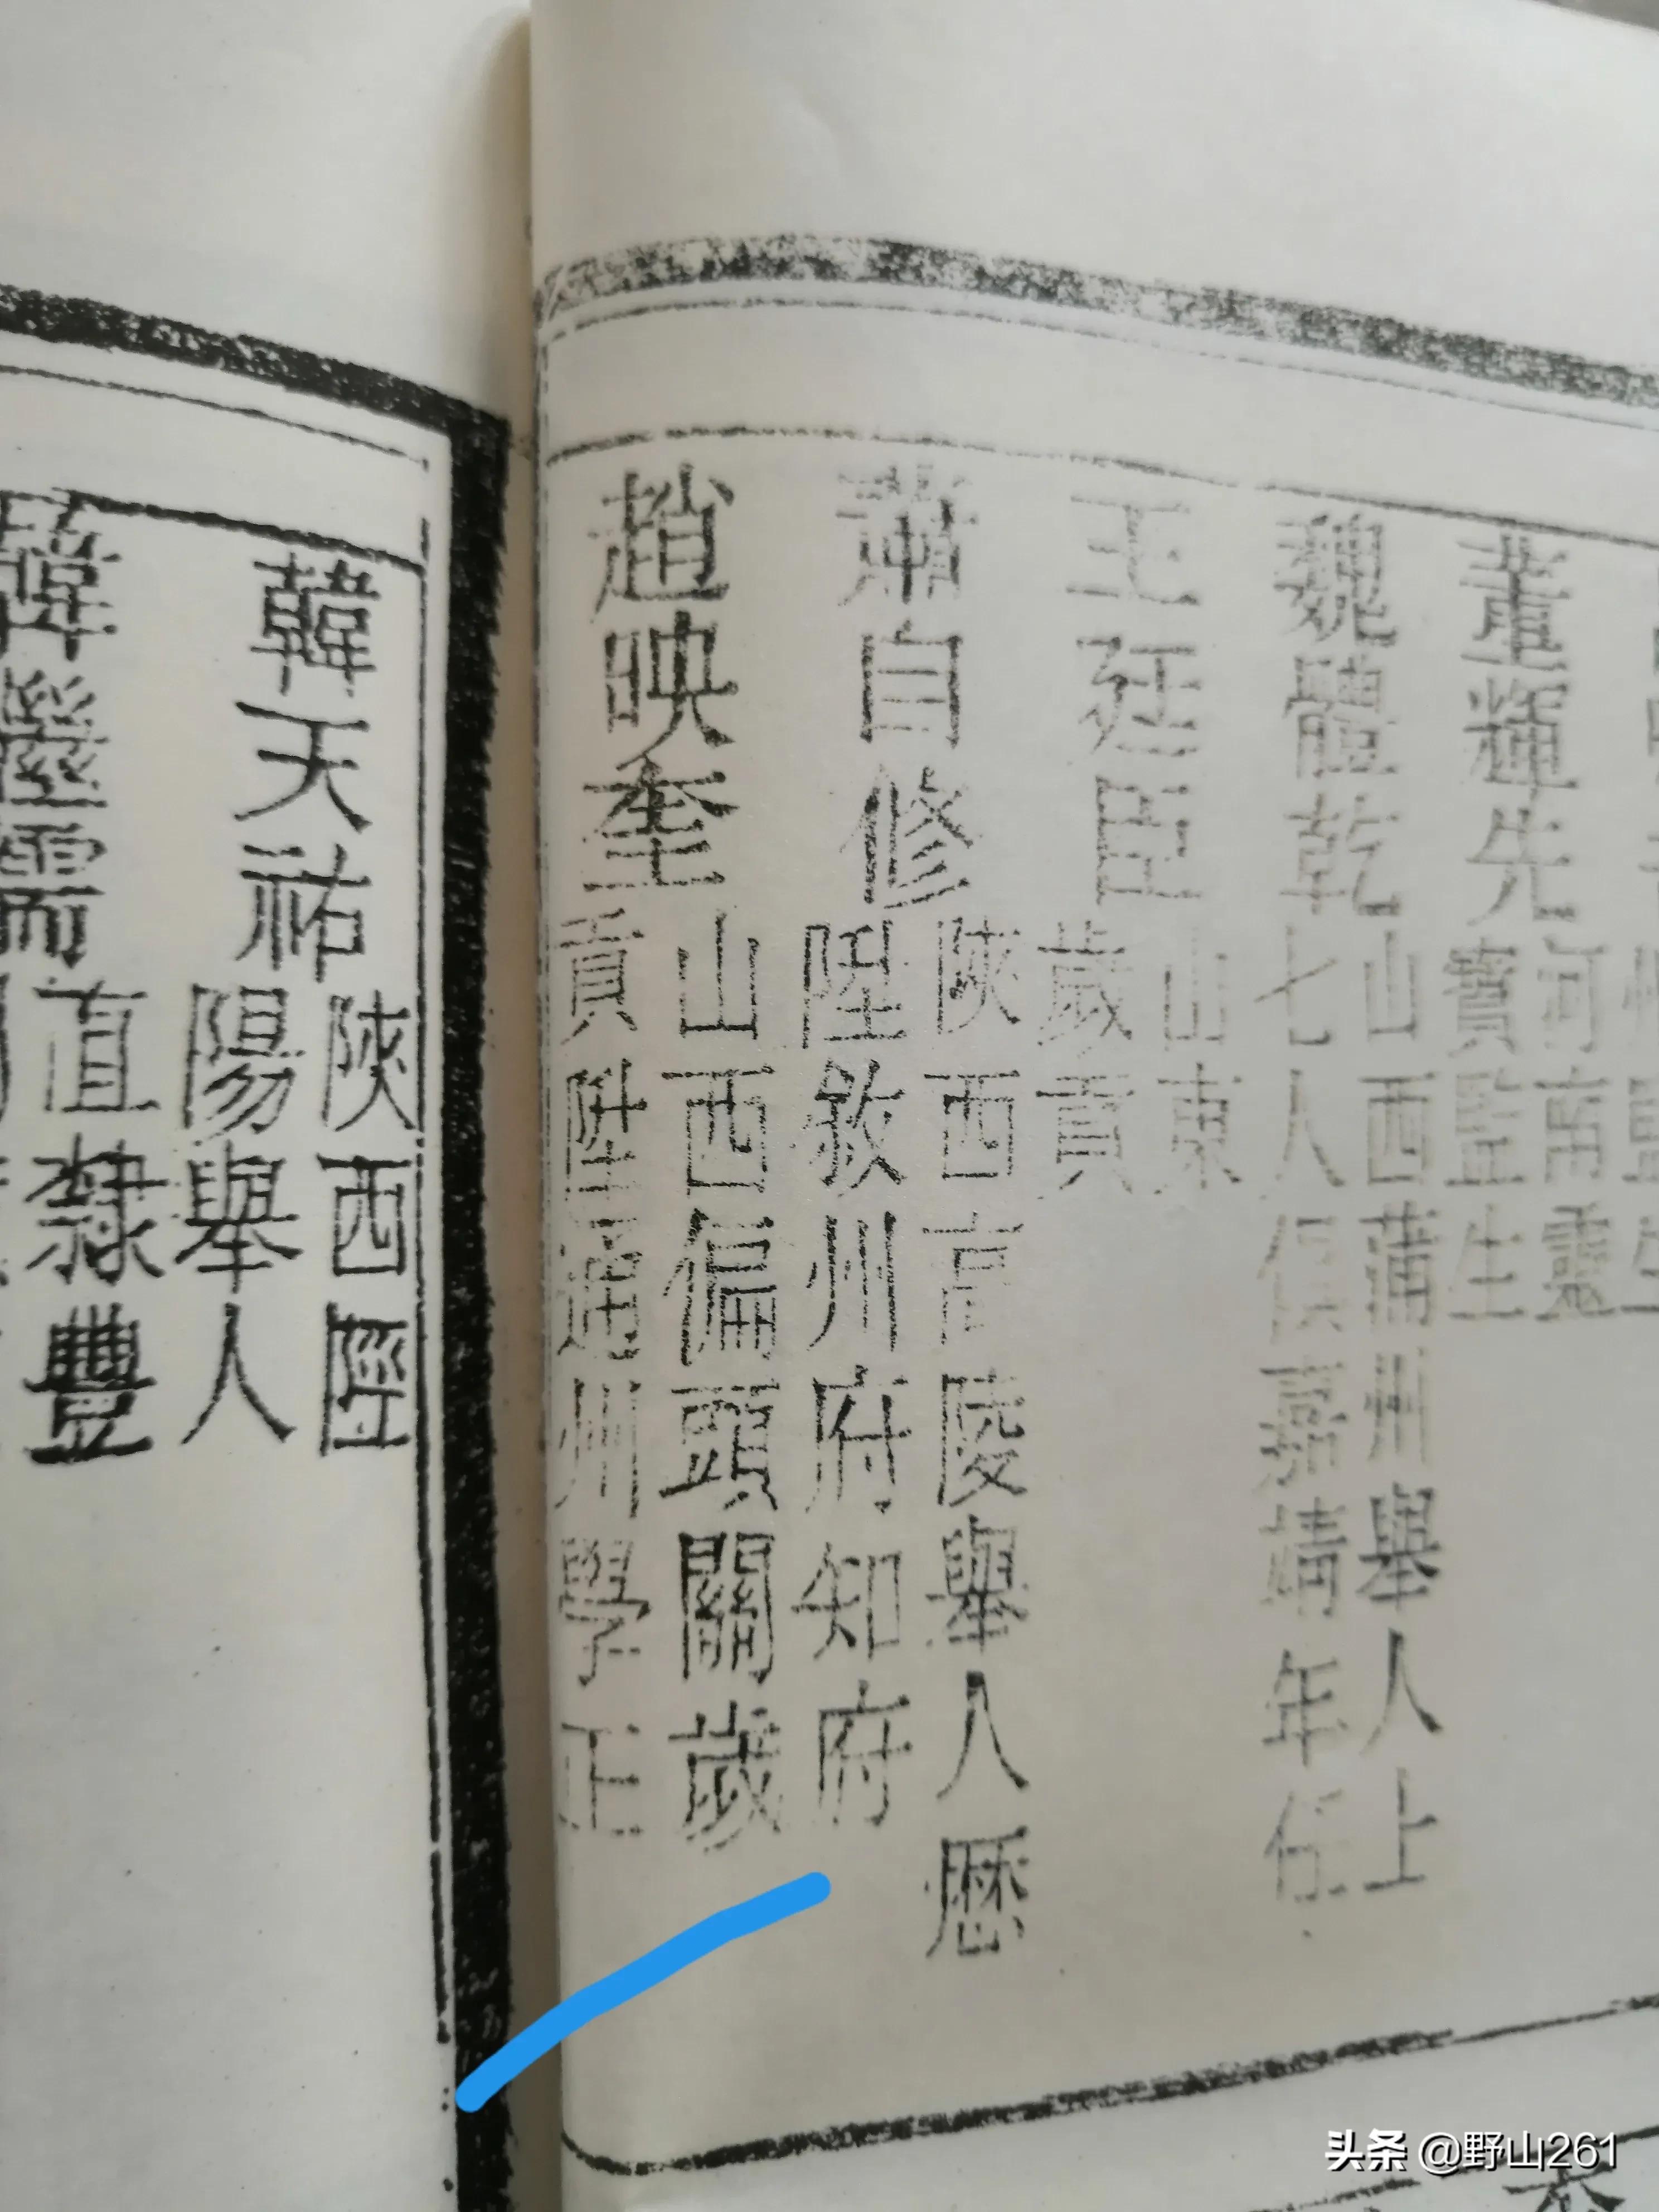 董輝先
河南靈
寶監生
魏體乾
山西蒲州舉人上
七人俱嘉靖年任
王廷臣
山東
歲貢
蕭自修
陝西高陵舉人歷
陞敘州府知府
趙映奎
山西偏頭關歲
貢陞通州學正
韓天祐
陝西陘
陽舉人
韓
直隸豐
头条 @野山261